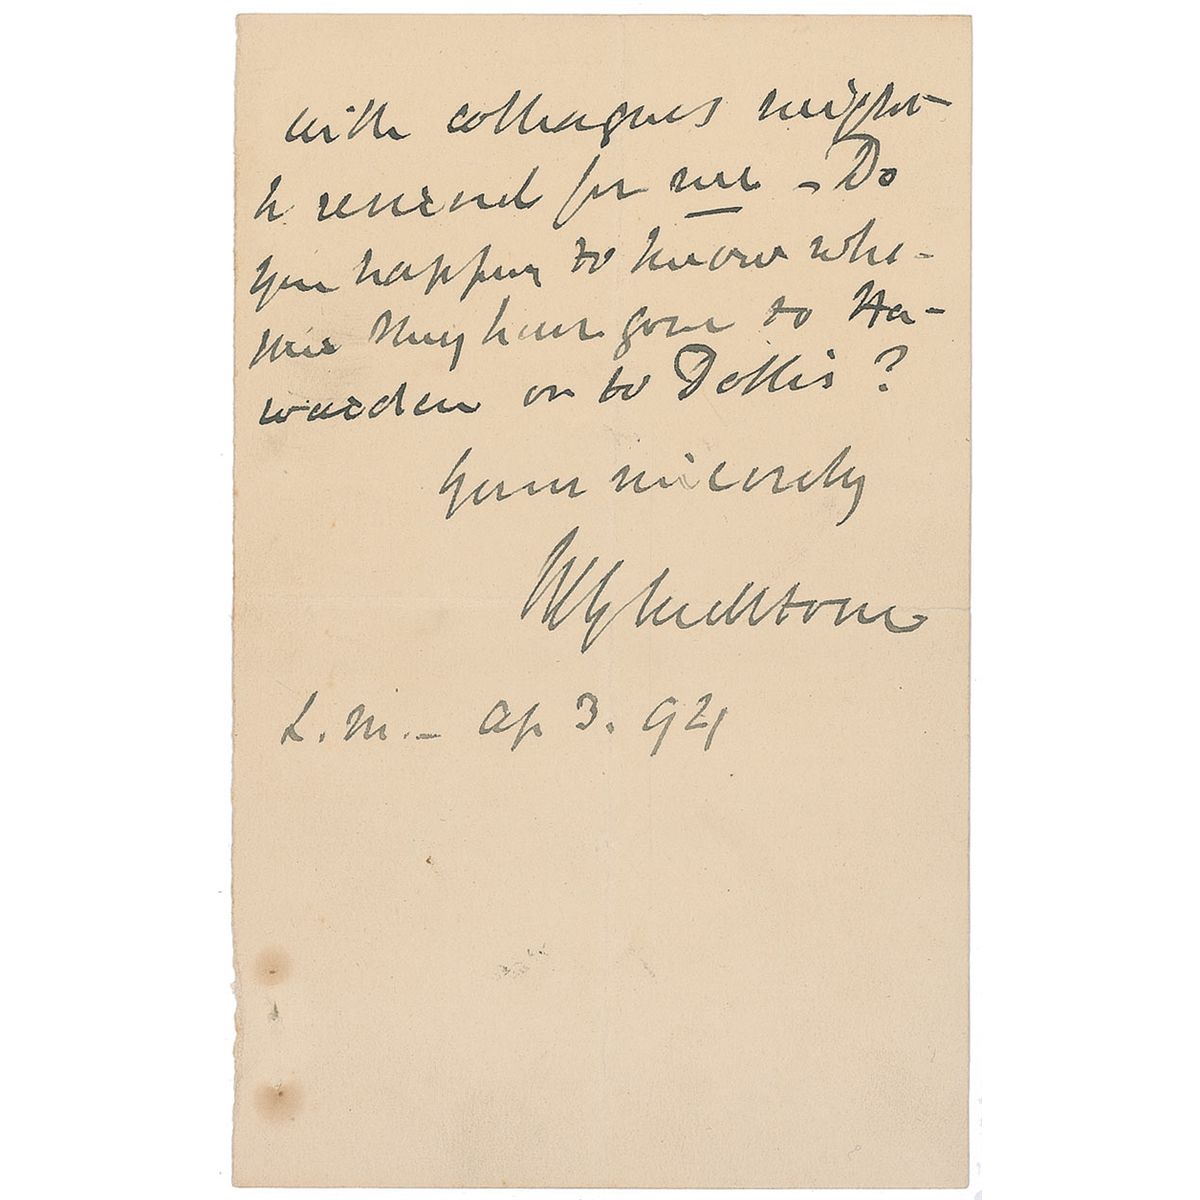 with colleagues might
be reserved for me – Do
you happen to know whe-
ther they have gone to Ha-
warden or to Dollis ?
Yours sincerely
WEGladstone
L. M. – Ap 3. 94